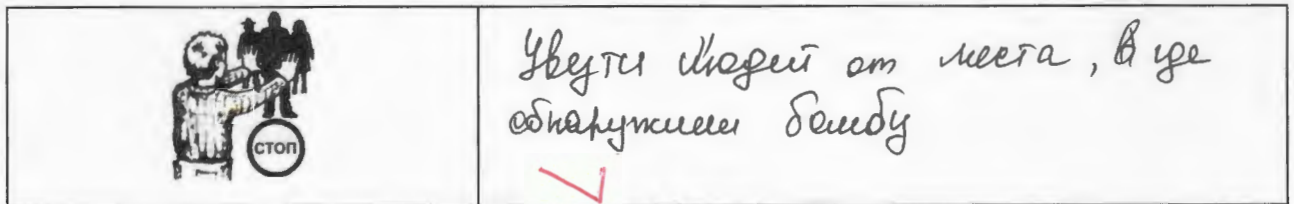 СТОП
Увести людей от места, где
обнаружили бомбу